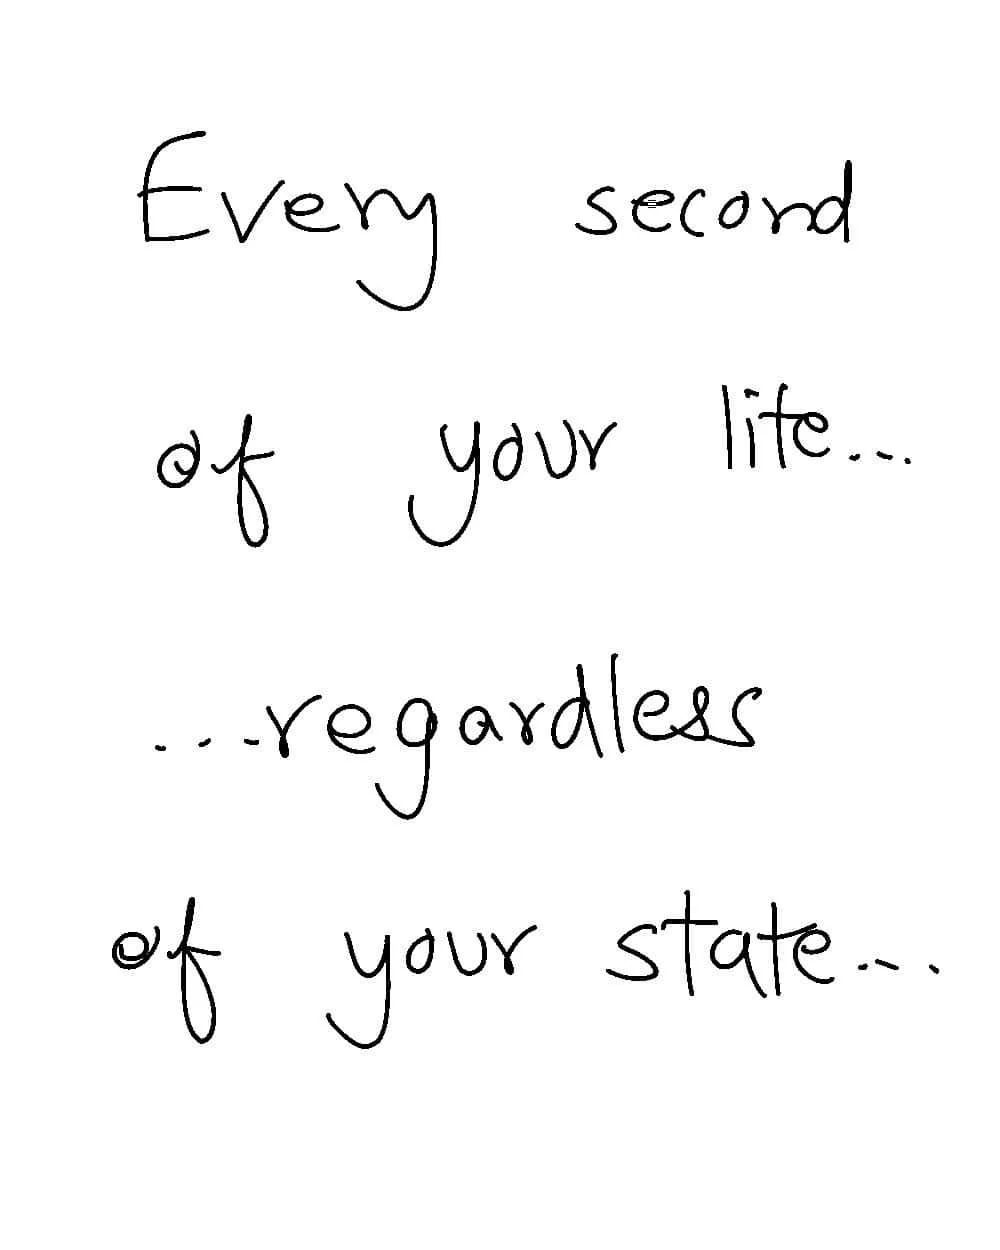 Every second
of your life...
...regardless
of your state...